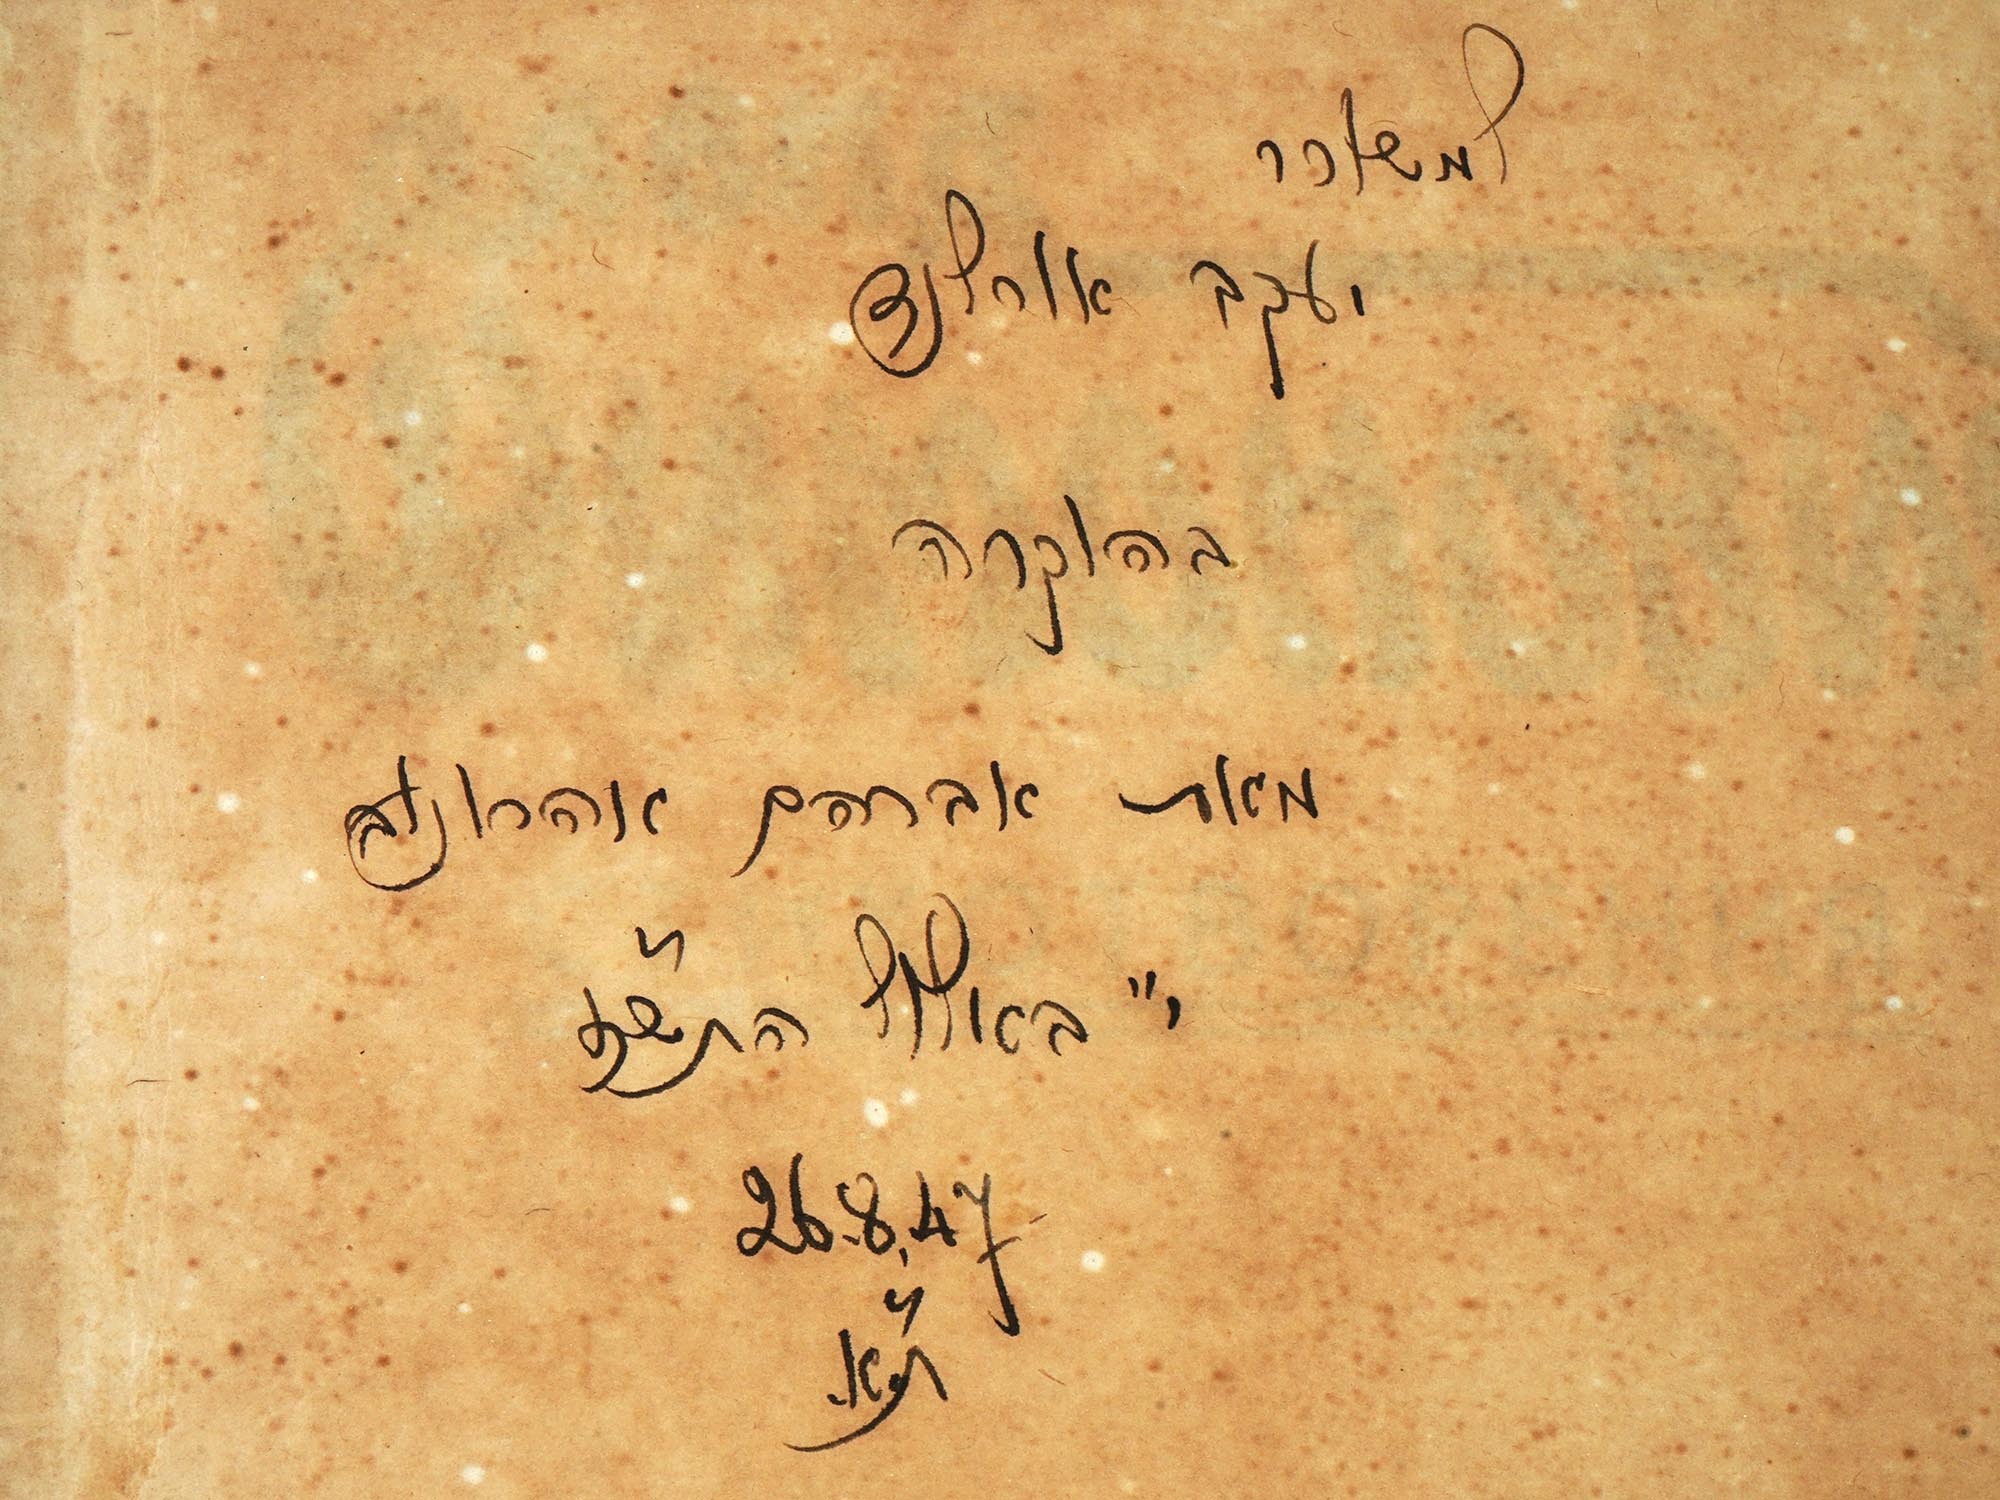 למשורר
יעקב אורלנד
בהוקרה
מאת אברהם אהרונוב
י" באלול התש"ז
26.8.47
ת"א.